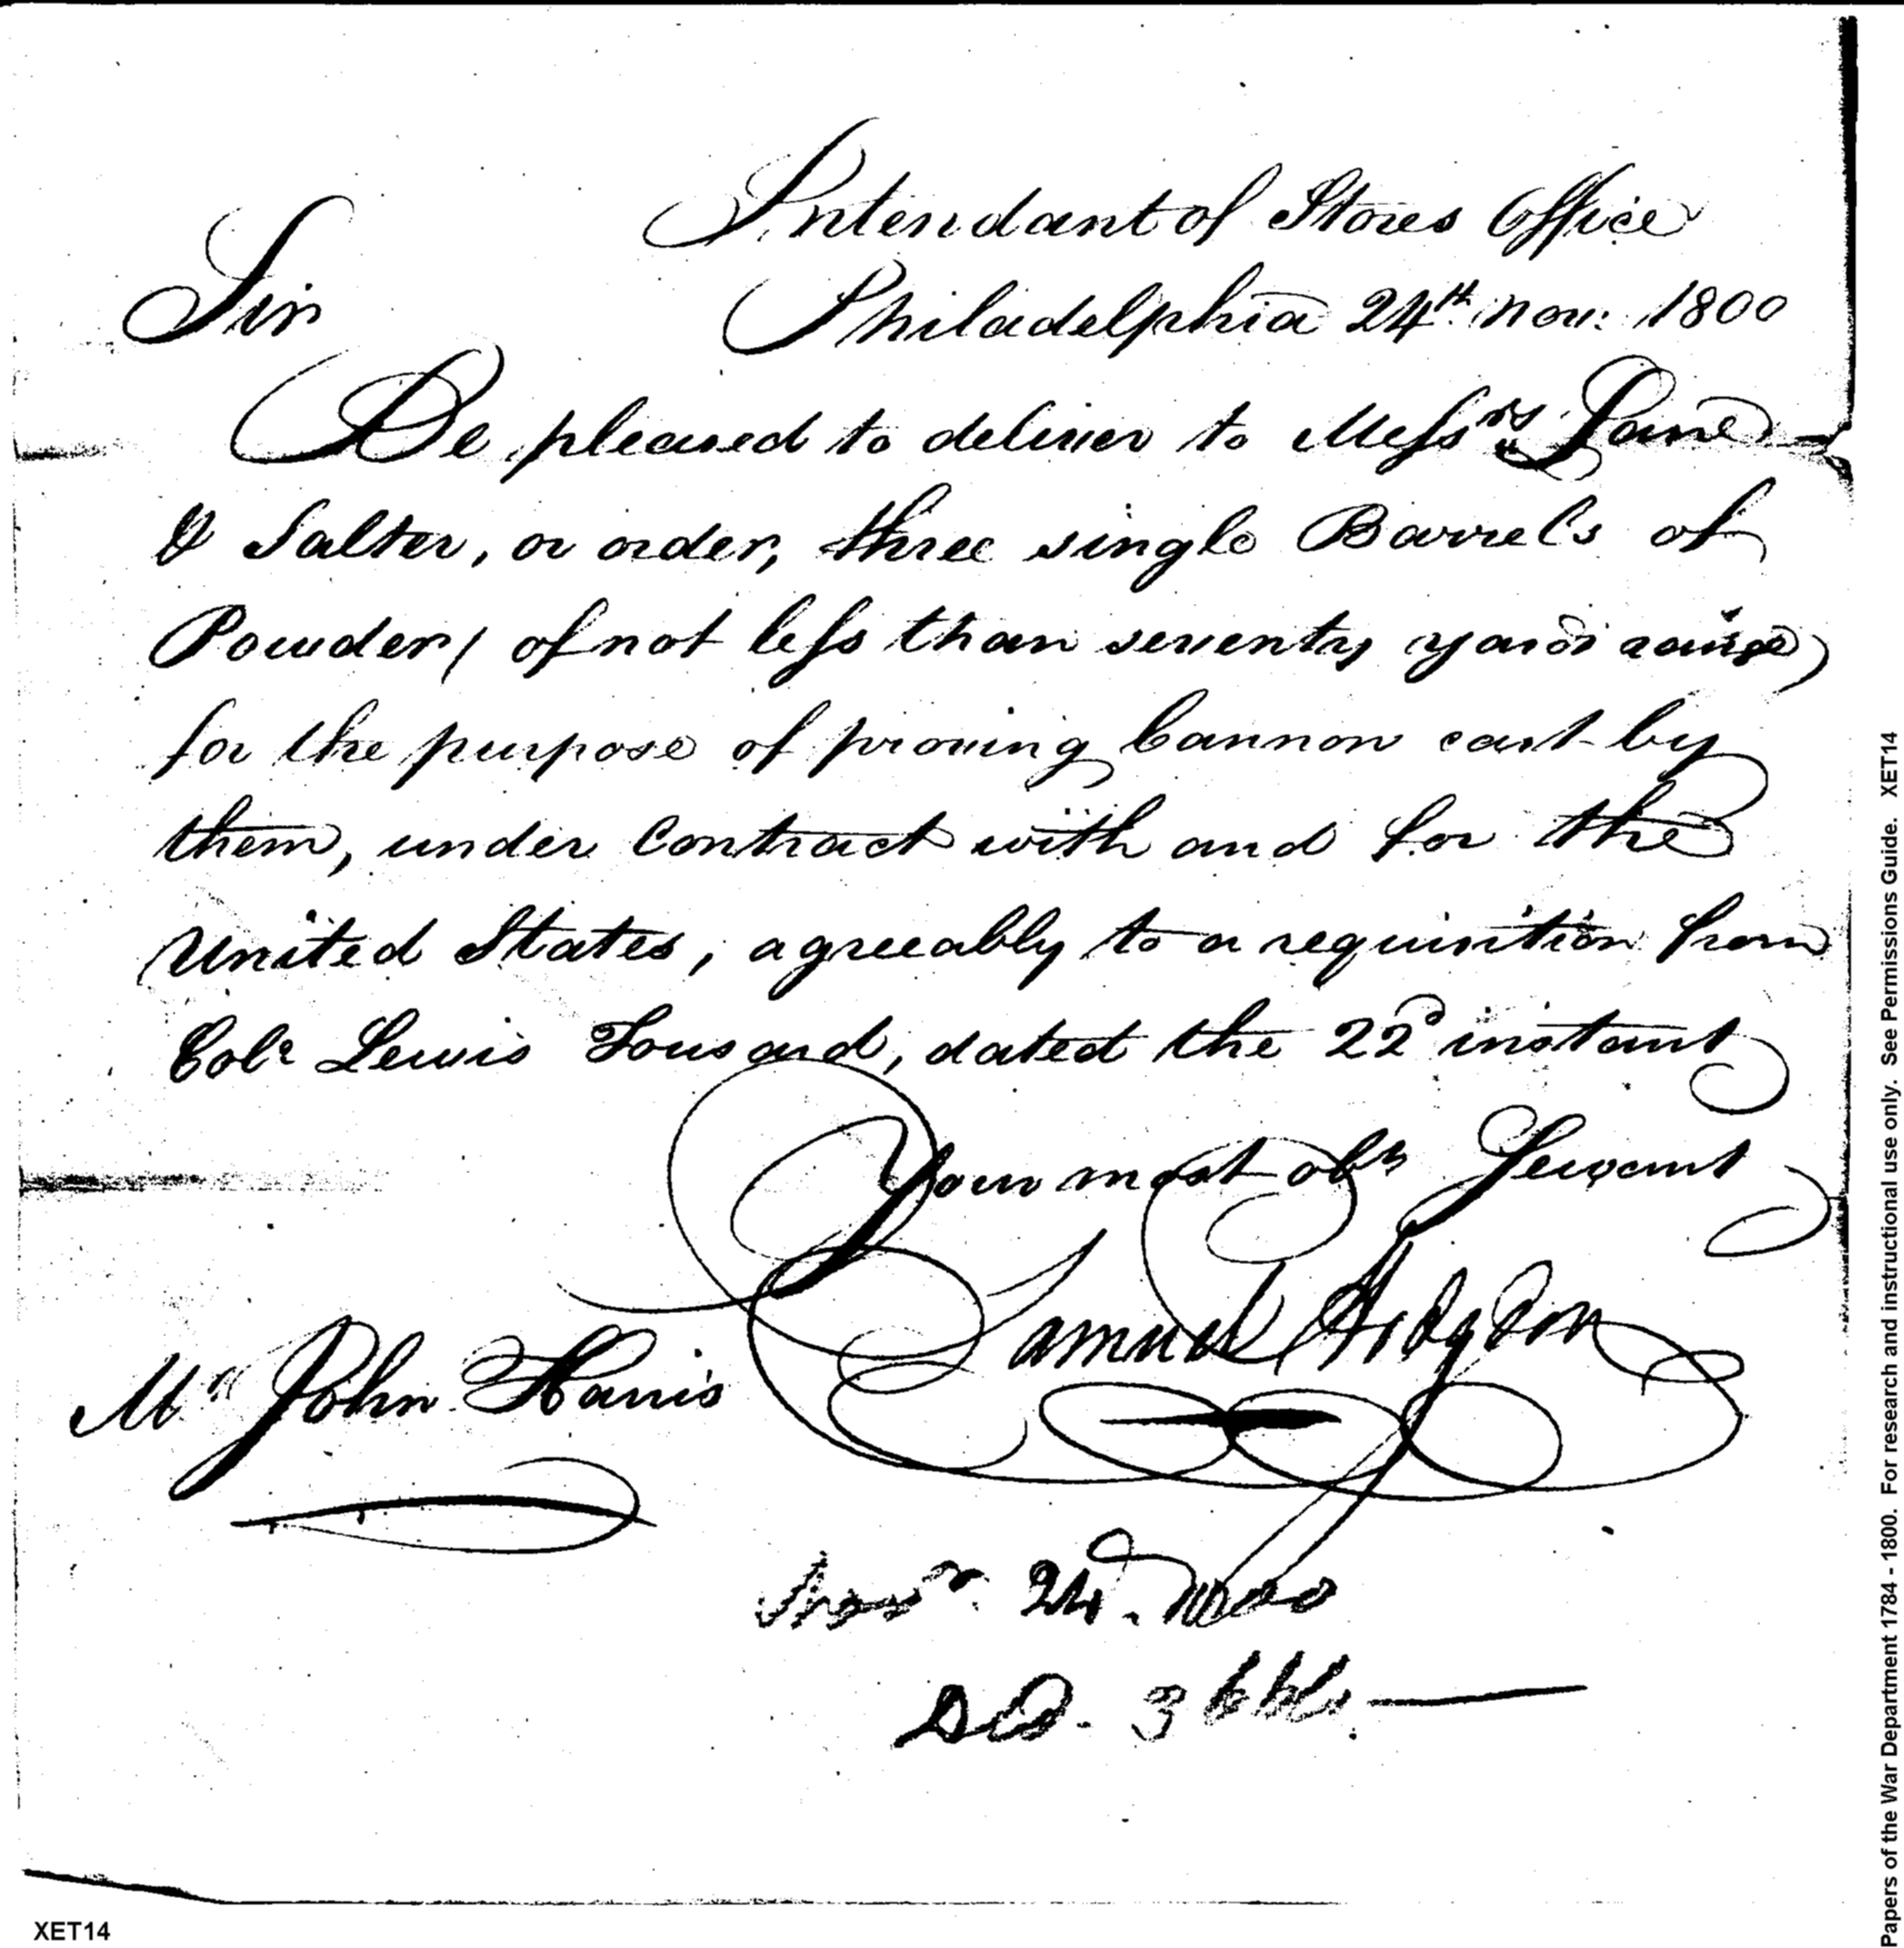 Intendant of Stores Office
Sir Philadelphia 24th. Nov: 1800
Be pleased to deliver to Messrs. Lane
& Salter, or order, three single Barrels of
Powder (of not less than seventy yards
for the purpose of proving Cannon cast by
them, under Contract with and for the
United States, agreeably to a requisition from
Colo Lewis Tousard, dated the 22d instant
Your most obt Servant
Samuel Hodgdon
Mr John Harris
Novr. 24. 1800
DD. 3 bbls.
XET14
Papers of the War Department 1784 - 1800. For research and instructional use only. See Permissions Guide. XET14